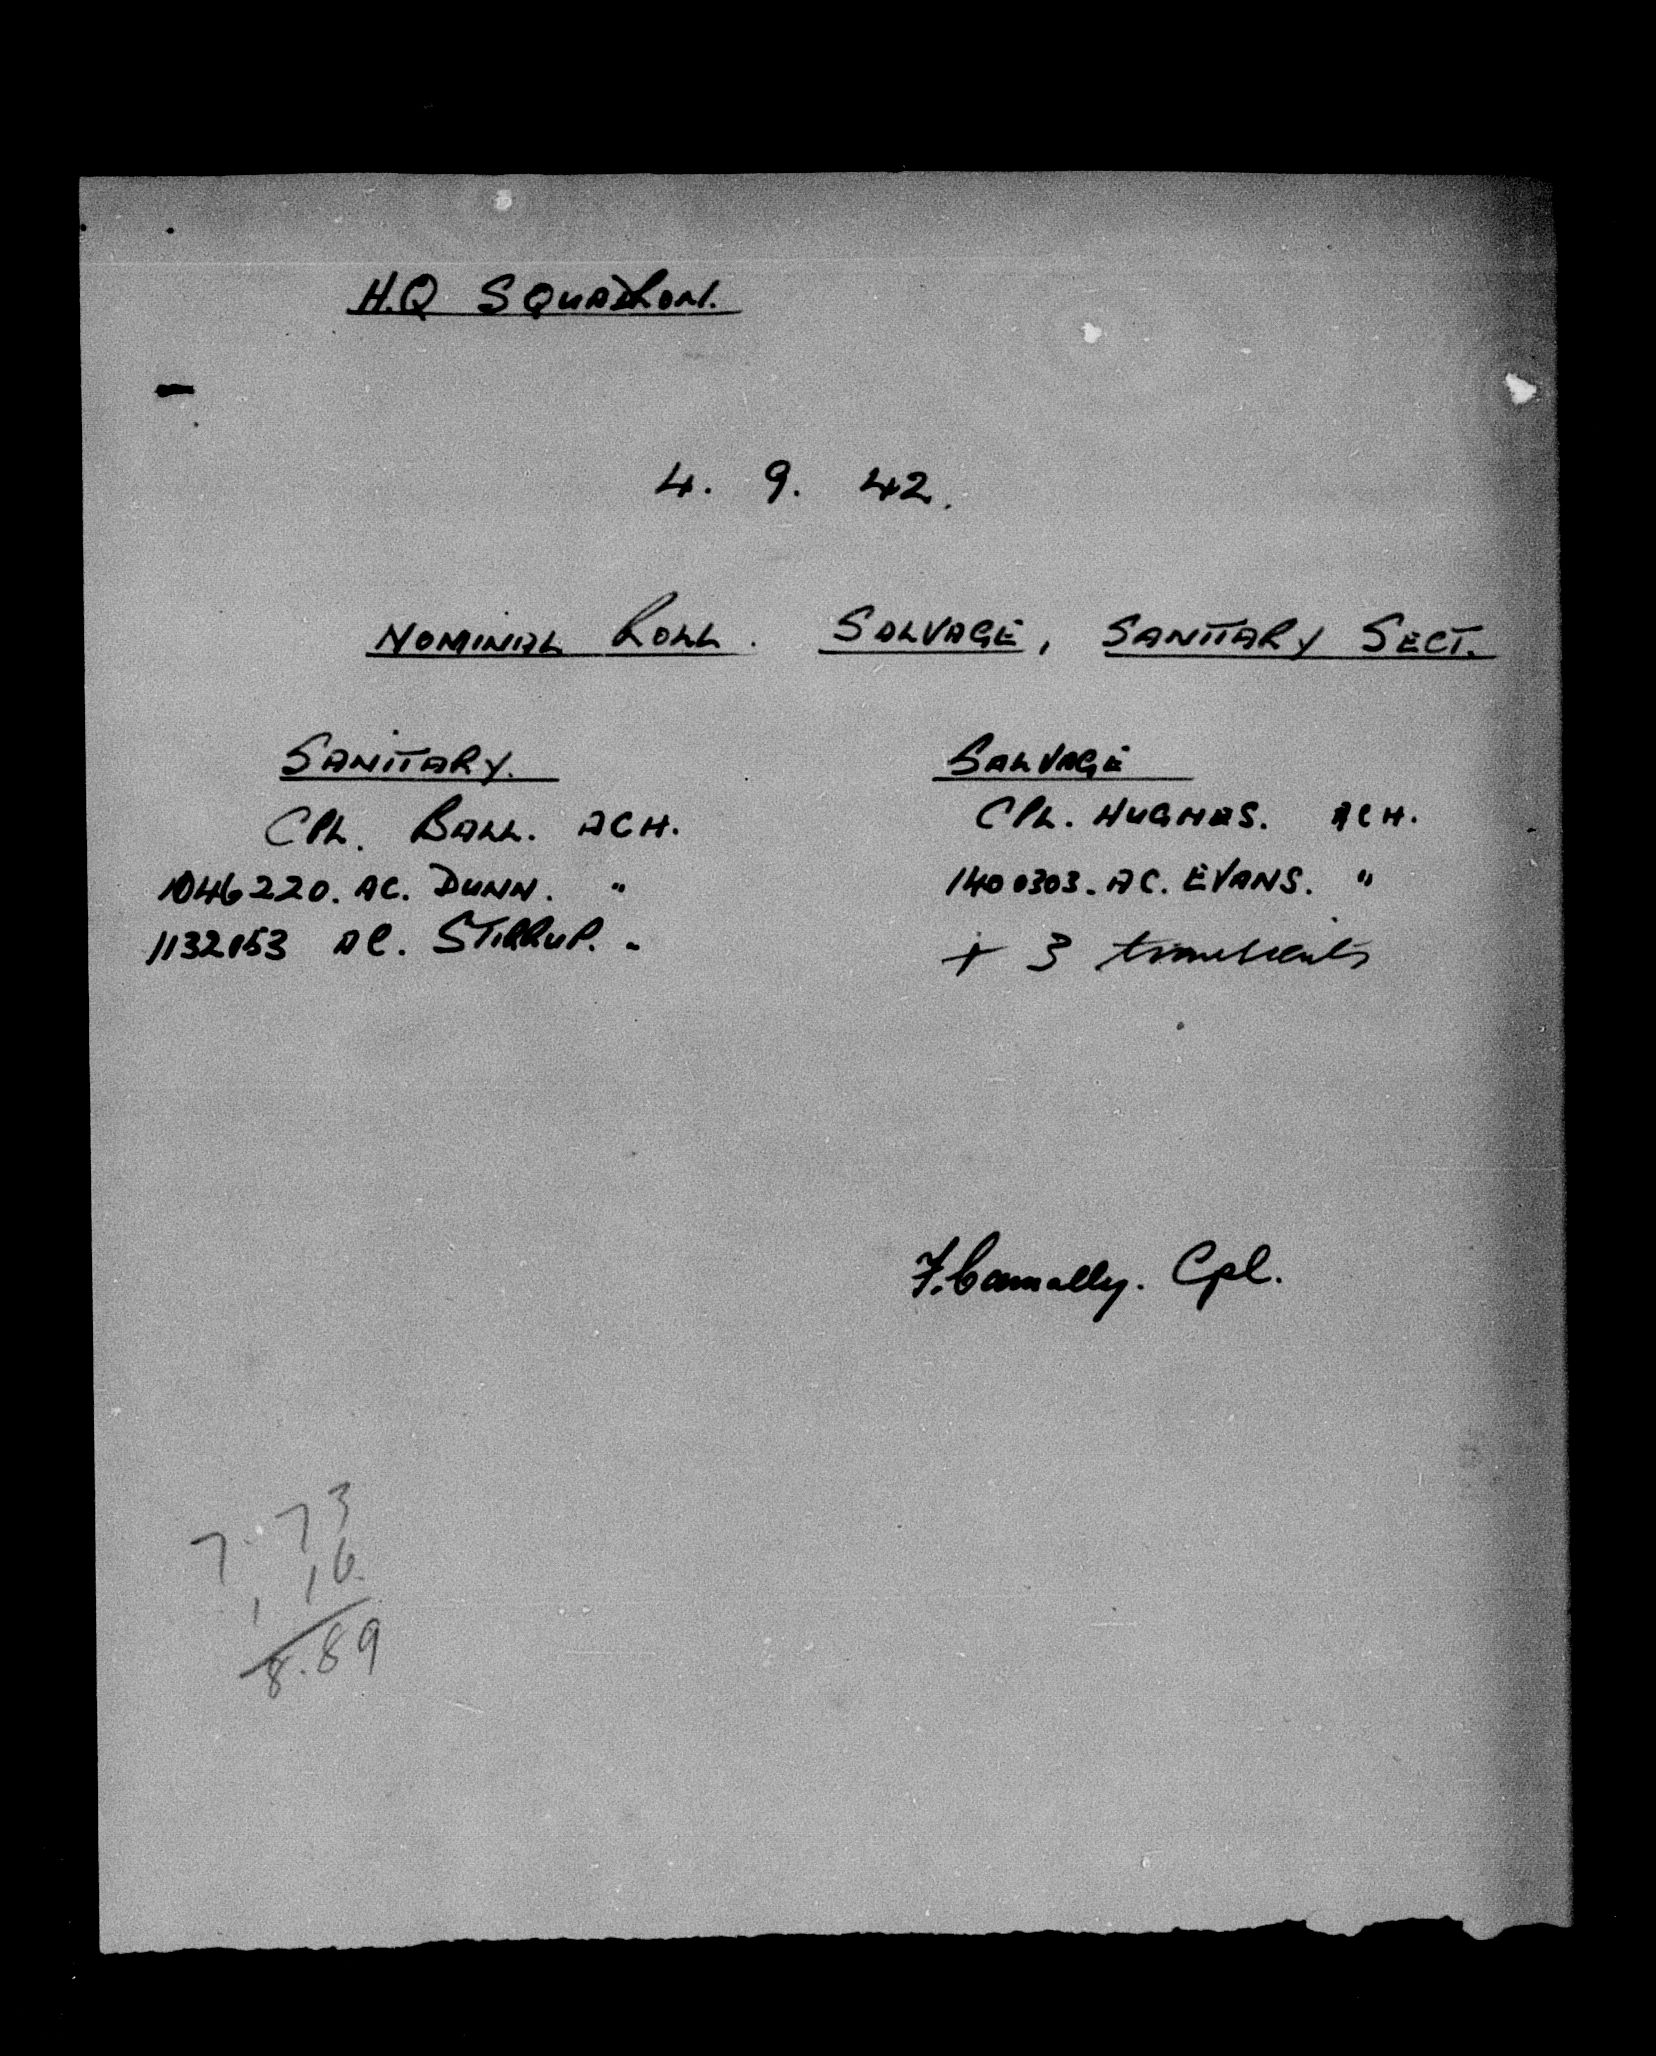 H.Q SQUADRON.
4. 9. 42.
NOMINAL ROLL. SALVAGE, SANITARY SECT.
SANITARY.
CPL. BALL. ACH.
1046220. AC. DUNN. "
1132153 AC. STIRRUP. "
SALVAGE
CPL. HUGHES. ACH.
1400303. AC. EVANS. "
+ 3 transients
F. Cpl.
7.73
1.16
8.89